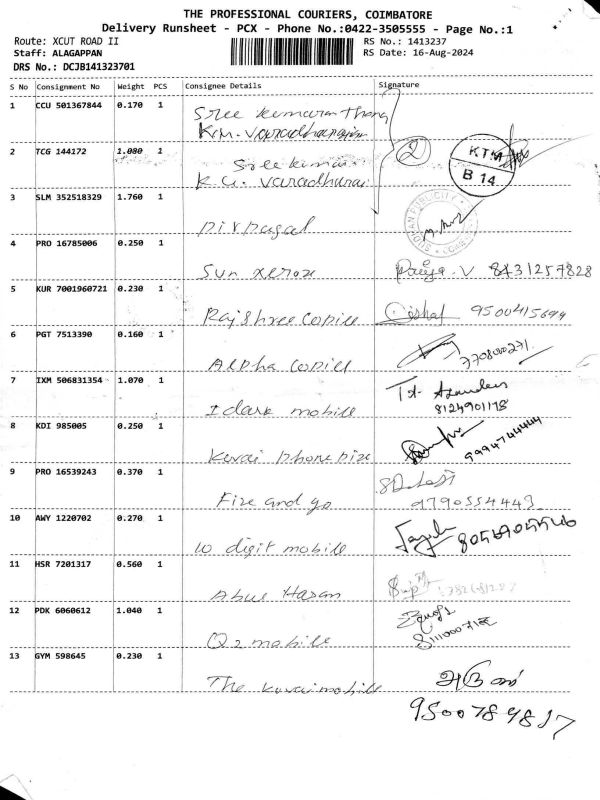 THE PROFESSIONAL COURIERS, COIMBATORE
Delivery Runsheet - PCX - Phone No.:0422-3505555 - Page No.:1
Route: XCUT ROAD II RS No.: 1413237
Staff: ALAGAPPAN RS Date: 16-Aug-2024
DRS No.: DCJB141323701
S No Consignment No Weight PCS Consignee Details Signature
1 CCU 501367844 0.170 1
Sree kumaran Thang
K.M. Varadharajan
2 TCG 144172 1.080 1 2 KTM
Sree kumar B 14
K.G. Varadharaj
3 SLM 352518329 1.760 1 INDIAN PUBLICITY
4 PRO 16785006 0.250 1
Sun xerox Priya.V 8431257828
5 KUR 7001960721 0.230 1
Rajshree copier 9500415694
6 PGT 7513390 0.160 1
Alpha copier 7708000271
7 IXM 506831354 1.070 1
Idark mobile 8124901178
8 KDI 985005 0.250 1
Kovai phone pize 9994744444
9 PRO 16539243 0.370 1
Fixe and go 9790554443
10 AWY 1220702 0.270 1
10 digit mobile
11 HSR 7201317 0.560 1
Abul Hasan
12 PDK 6060612 1.040 1
Q2 mobile
13 GYM 598645 0.230 1
The kovai mobile அருண்
9500789817